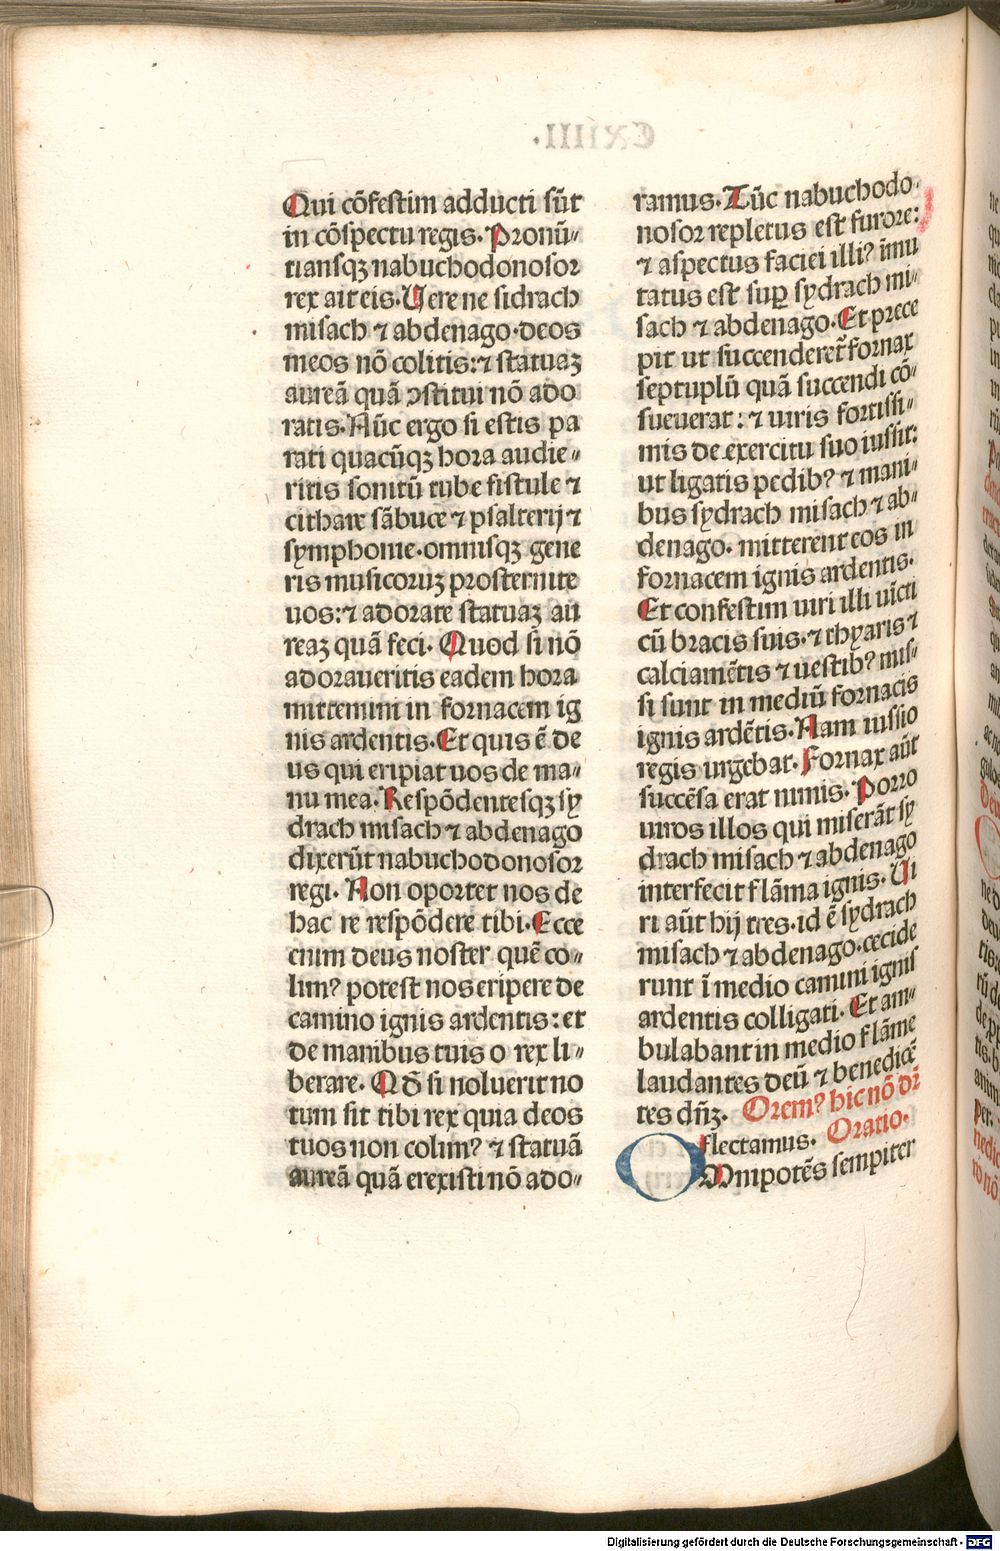 Qui cōfestim adducti sūt
in cōspectu regis. Pronū⸗
tiansqꝫ nabuchodonosor
rex ait eis. Vere ne sidrach
misach ⁊ abdenago. deos
meos nō colitis: ⁊ statuaꝫ
aureā quā ꝯstitui nō ado
ratis. Nūc ergo si estis pa
rati quacūqꝫ hora audie⸗
ritis sonitū tube fistule ⁊
cithare sābuce ⁊ psalterij ⁊
symphonie. omnisqꝫ gene
ris musicoruꝫ prosternite
uos: ⁊ adorare statuaꝫ au
reaꝫ quā feci. Quod si nō
adoraueritis eadem hora
mittemini in fornacem ig
nis ardentis. Et quis ē de
us qui eripiat uos de ma⸗
nu mea. Respōdentesqꝫ sy
drach misach ⁊ abdenago
dixerūt nabuchodonosor
regi. Non oportet nos de
hac re respōdere tibi. Ecce
enim deus noster quē co⸗
limꝰ potest nos eripere de
camino ignis ardentis: et
de manibus tuis o rex li⸗
berare. Qđ si noluerit no
tum sit tibi rex quia deos
tuos non colimꝰ ⁊ statuā
aureā quā erexisti nō ado⸗
ramus. Tūc nabuchodo⸗
nosor repletus est furore:
⁊ aspectus faciei illiꝰ īmu
tatus est suꝑ sydrach mi⸗
sach ⁊ abdenago. Et prece
pit ut succenderet̄ fornax
septuplū quā succendi cō⸗
sueuerat: ⁊ uiris fortissi⸗
mis de exercitu suo iussit:
ut ligatis pedibꝰ ⁊ mani⸗
bus sydrach misach ⁊ ab⸗
denago. mitterent eos in
fornacem ignis ardentis.
Et confestim uiri illi uīcti
cū bracis suis. ⁊ thyaris ⁊
calciamētis ⁊ uestibꝰ mis⸗
si sunt in mediū fornacis
ignis ardētis. Nam iussio
regis urgebat. Fornax aūt
succēsa erat nimis. Porro
uiros illos qui miserāt sy
drach misach ⁊ abdenago
interfecit flāma ignis. Vi
ri aūt hij tres. id ē sydrach
misach ⁊ abdenago. cecide
runt ī medio camini ignis
ardentis colligati. Et am⸗
bulabant in medio flāme
laudantes deū ⁊ benedicē
tes dñꝫ. Oremꝰ hic nō dr̄
flectamus. Oratio.
OMnipotēs sempiter
Digitalisierung gefördert durch die Deutsche Forschungsgemeinschaft - DFG